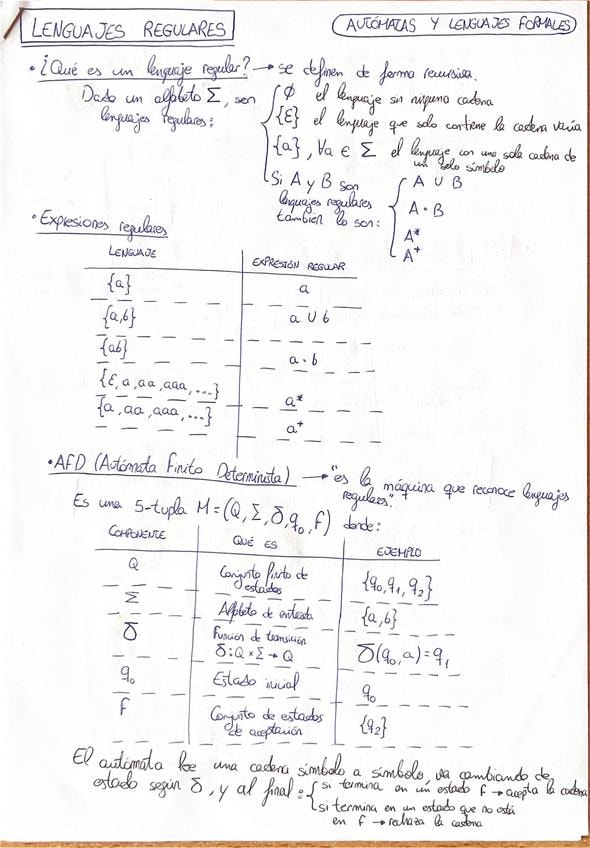 LENGUAJES REGULARES
AUTÓMATAS Y LENGUAJES FORMALES
• ¿Qué es un lenguaje regular? → se definen de forma recursiva.
Dado un alfabeto Σ, son
lenguajes regulares:
∅ el lenguaje sin ninguna cadena
{ε} el lenguaje que solo contiene la cadena vacía
{a}, ∀a ∈ Σ el lenguaje con una sola cadena de
un solo símbolo
Si A y B son
lenguajes regulares
también lo son:
A ∪ B
A · B
A*
A⁺
• Expresiones regulares
LENGUAJE EXPRESIÓN REGULAR
{a} a
{a,b} a ∪ b
{ab} a · b
{ε, a, aa, aaa, ...} a*
{a, aa, aaa, ...} a⁺
• AFD (Autómata Finito Determinista) → "es la máquina que reconoce lenguajes
regulares."
Es una 5-tupla M = (Q, Σ, δ, q₀, F) donde:
COMPONENTE QUÉ ES EJEMPLO
Q Conjunto finito de estados {q₀, q₁, q₂}
Σ Alfabeto de entrada {a,b}
δ Función de transición
δ: Q × Σ → Q δ(q₀, a) = q₁
q₀ Estado inicial q₀
F Conjunto de estados
de aceptación {q₂}
El autómata lee una cadena símbolo a símbolo, va cambiando de
estado según δ, y al final:
si termina en un estado F → acepta la cadena
si termina en un estado que no está
en F → rechaza la cadena